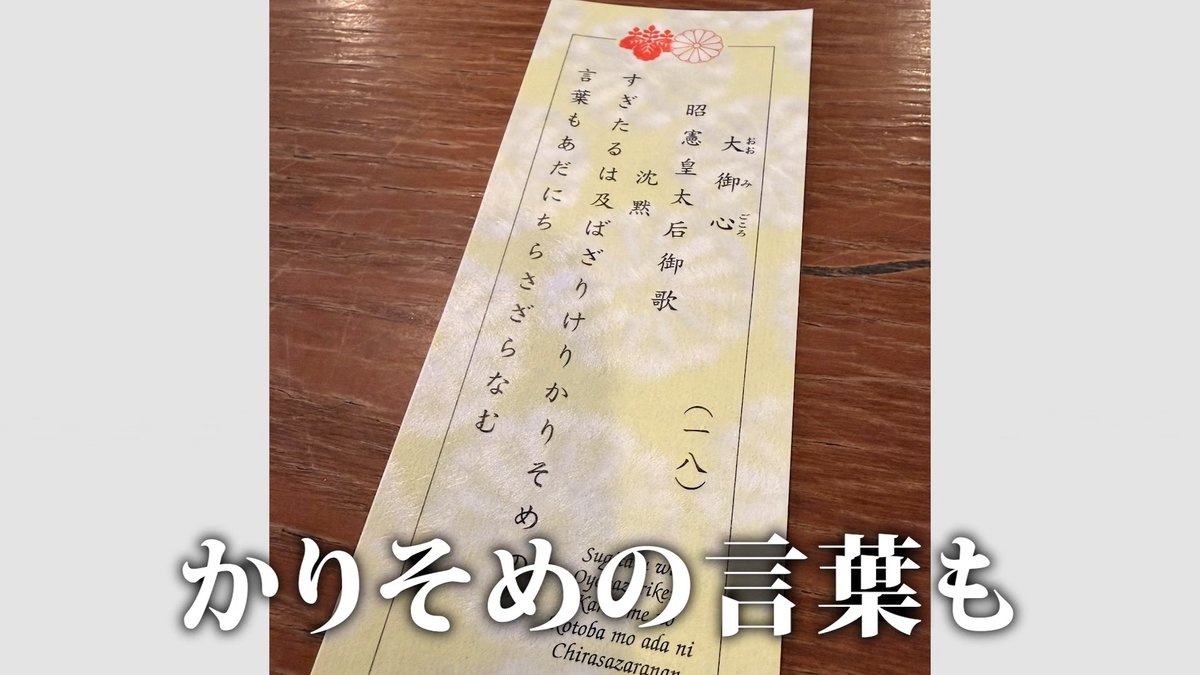 大御心
おおみごころ
昭憲皇太后御歌 (一八)
沈黙
すぎたるは及ばざりけりかりそめ
言葉もあだにちらさざらなむ
wa
Kotoba mo ada ni
Chirasazaranan
かりそめの言葉も